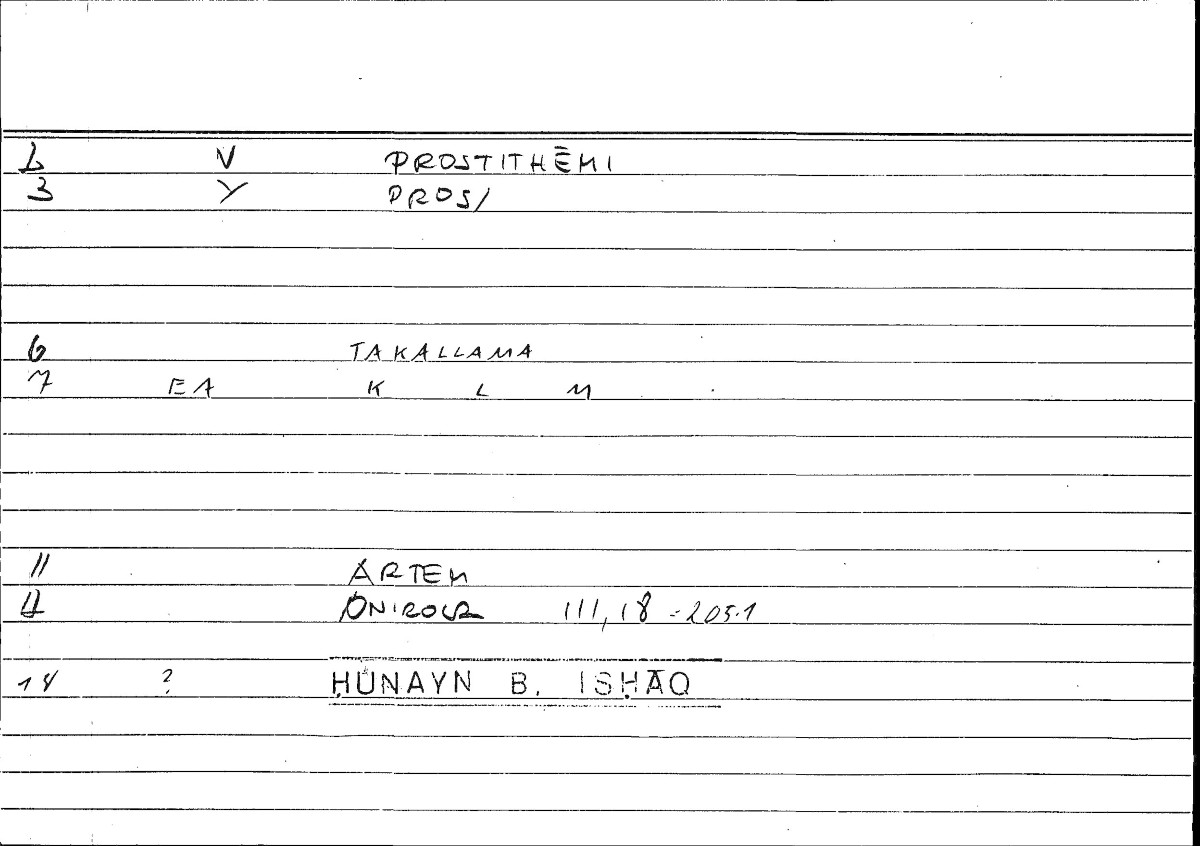 2 V PROSTITHĒMI
3 Y PROS/
6 TAKALLAMA
7 EA K L M
11 ARTEM
12 III, 18 = 205.1
14 ? ḤUNAYN B. ISḤĀQ